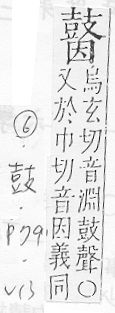 烏玄切音淵鼓聲○
又於巾切音因義同
⑥
·
鼓
·
P791
·
V13